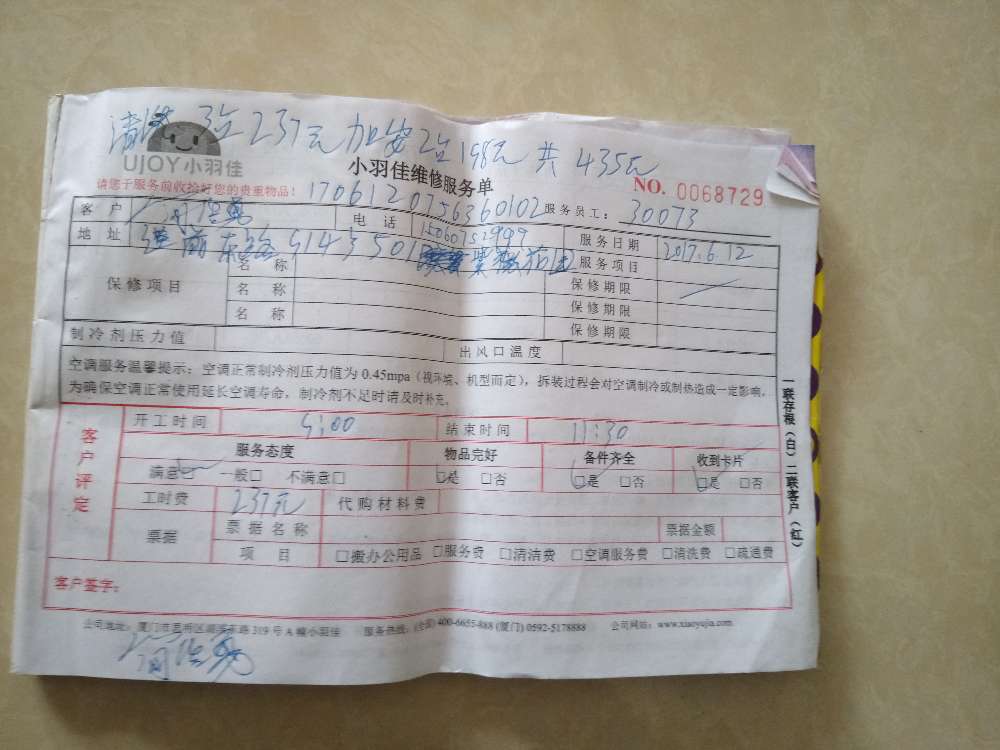 清洗3台237元 加安2台198元 共435元
UJOY小羽佳
小羽佳维修服务单
请您于服务前收拾好您的贵重物品! NO. 0068729
1706120756360102 服务员工: 30073
客户 电话 15060752999 服务日期 2017.6.12
地址 莲前东路 501 服务项目
保修项目 名称 保修期限
名称 保修期限
名称 保修期限
制冷剂压力值 出风口温度
空调服务温馨提示:空调正常制冷剂压力值为0.45mpa(视环境、机型而定),拆装过程会对空调制冷或制热造成一定影响,
为确保空调正常使用延长空调寿命,制冷剂不足时请及时补充。
客户评定
开工时间 9:00 结束时间 11:30
服务态度 物品完好 备件齐全 收到卡片
满意□ 一般□ 不满意□ □是 □否 □是 □否 □是 □否
工时费 237元 代购材料费
票据 票据名称 票据金额
项目 □搬办公用品 □服务费 □清洁费 □空调服务费 □清洗费 □疏通费
客户签字:
公司地址:厦门市思明区湖滨东路319号A幢小羽佳 服务热线:(全国)400-6655-888 (厦门) 0592-5178888 公司网站:www.xiaoyujia.com
一联存根(白)二联客户(红)